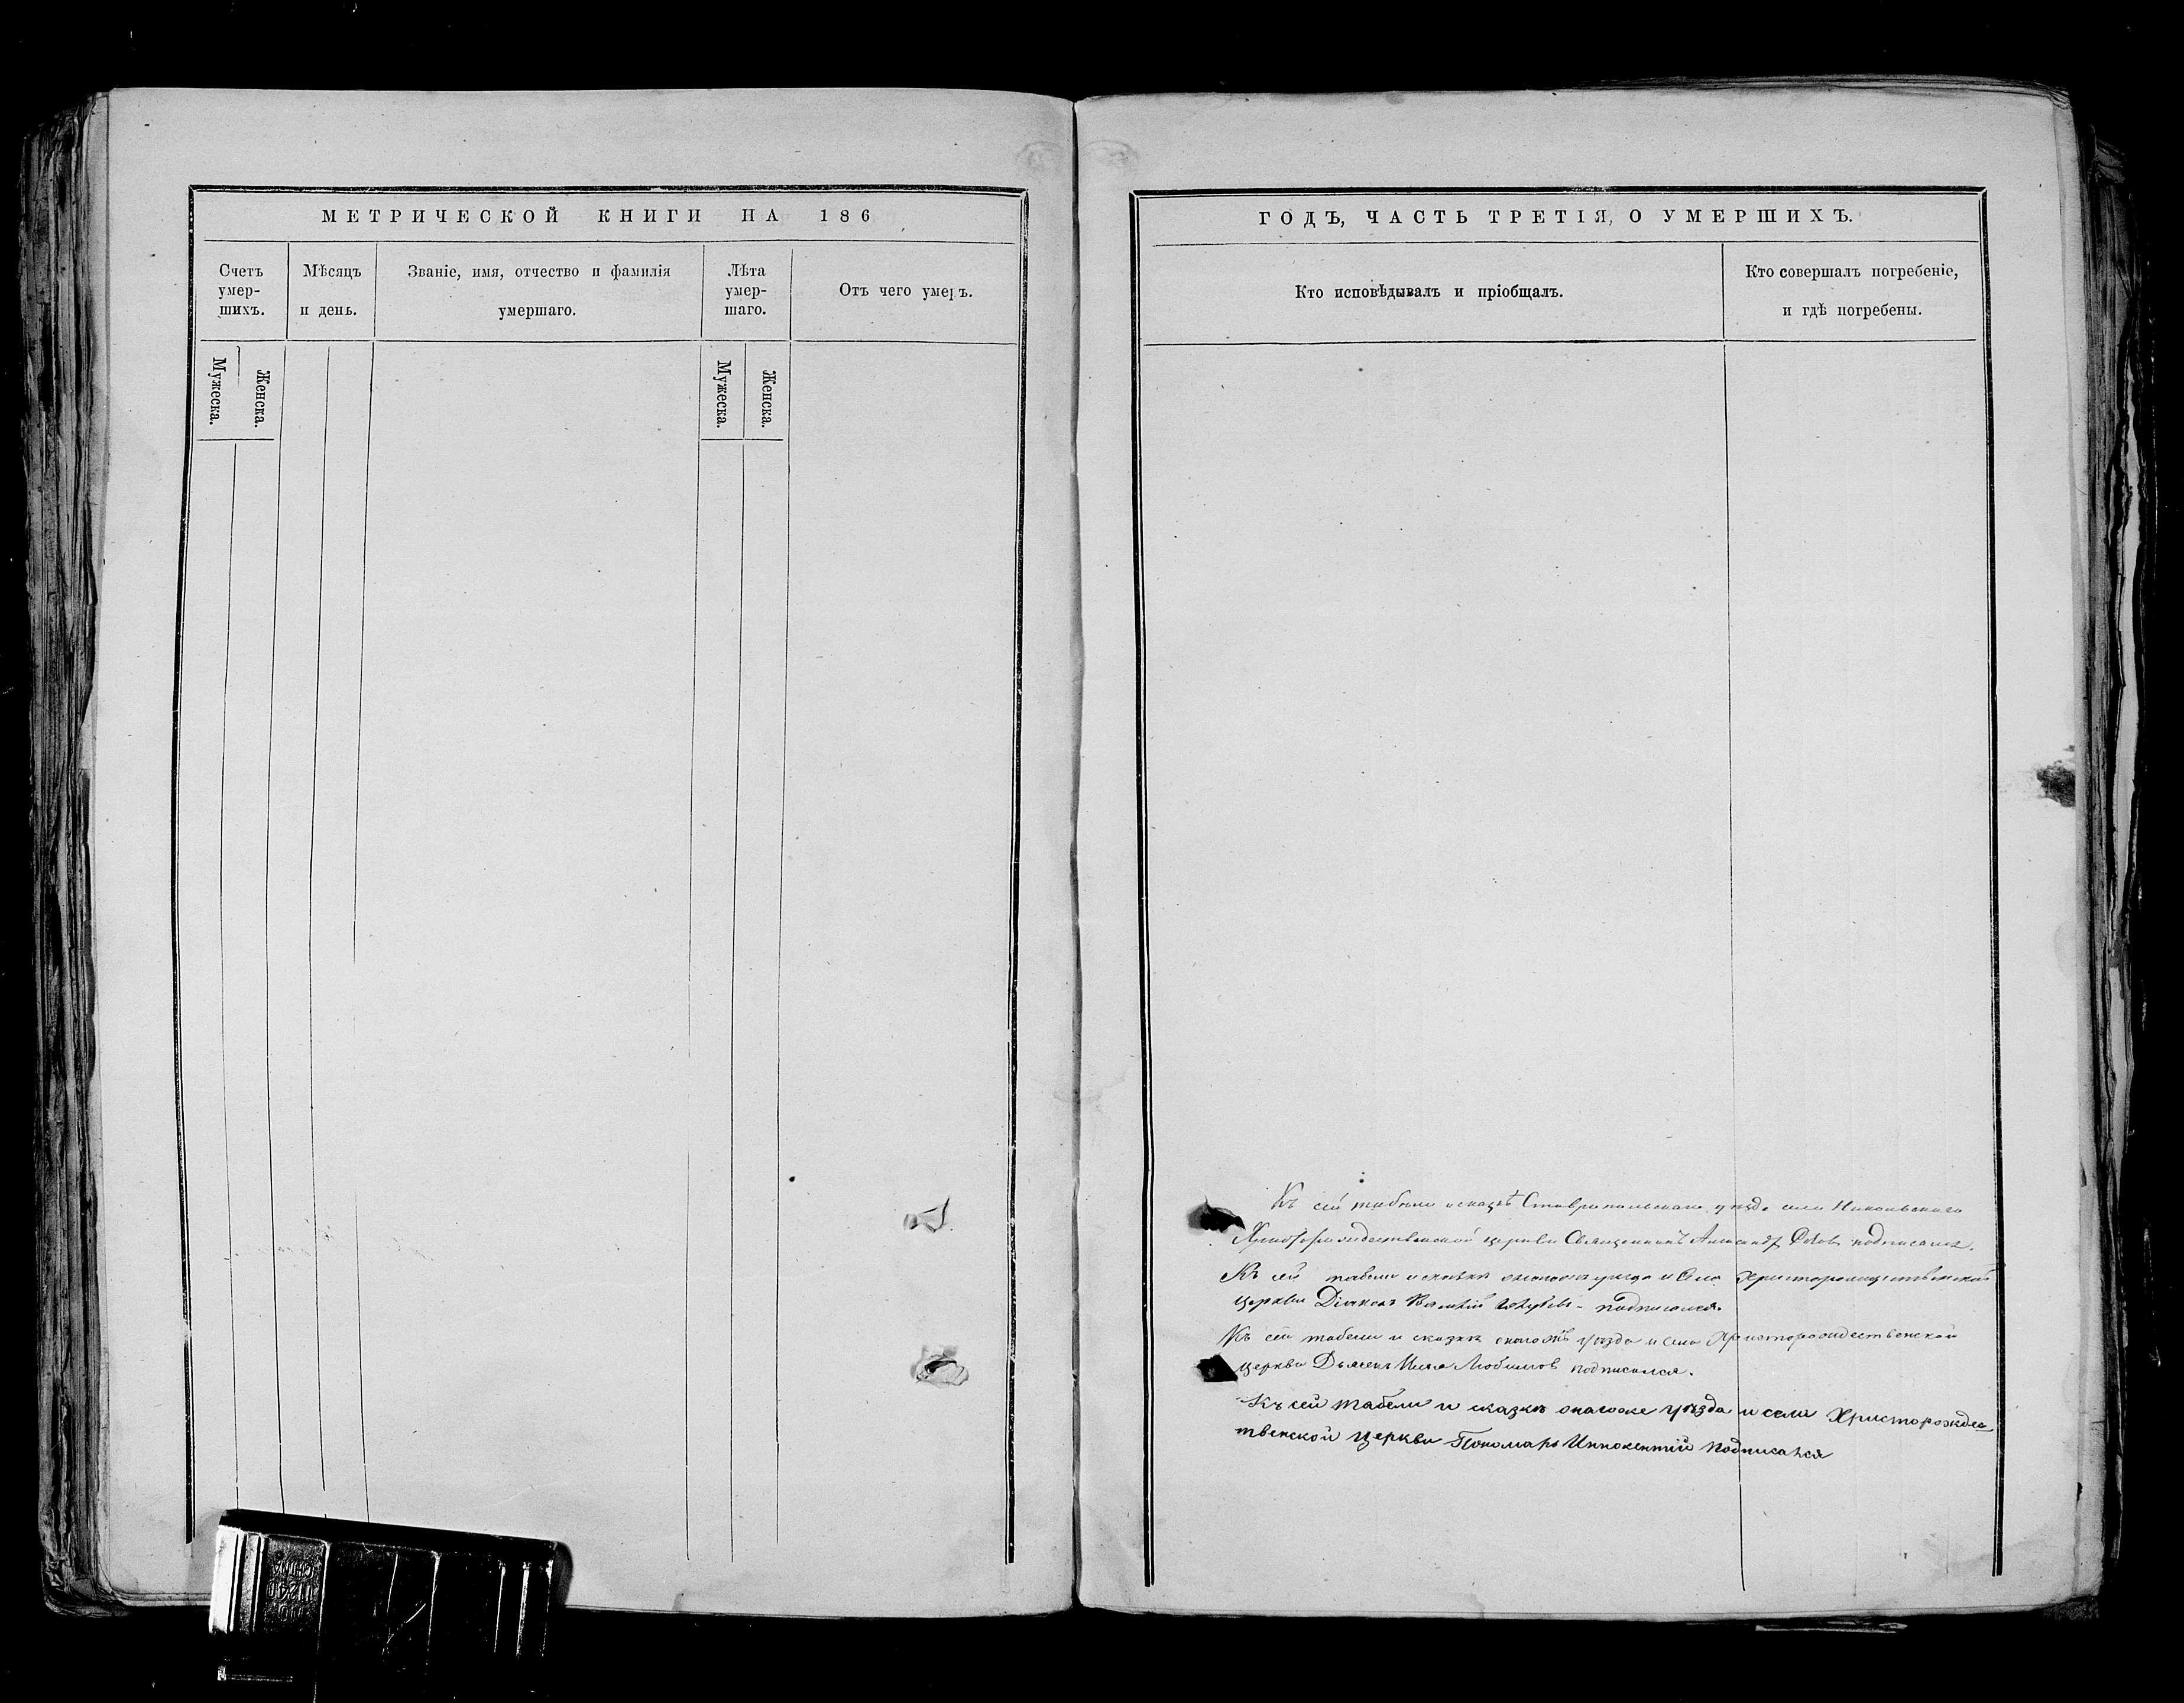 МЕТРИЧЕСКОЙ КНИГИ НА 186
Счетъ умер-шихъ.
Мѣсяцъ и день.
Званіе, имя, отчество и фамилія умершаго.
Лѣта умер-шаго.
Отъ чего умеръ.
Мужеска.
Женска.
Мужеска.
Женска.
ГОДЪ, ЧАСТЬ ТРЕТІЯ, О УМЕРШИХЪ.
Кто исповѣдывалъ и пріобщалъ.
Кто совершалъ погребеніе, и гдѣ погребены.
Къ сей табели и сказкѣ Ставропольскаго уѣзда села Никольскаго
Христорождественской церкви Священникъ Александръ подписался.
Къ сей табели и сказкѣ уѣзда и села Христорождественской
церкви Діаконъ подписался.
Къ сей табели и сказкѣ уѣзда и села Христорождественской
церкви Дьячекъ Илья Любимовъ подписался.
Къ сей табели и сказкѣ онагоже уѣзда и села Христорождес
твенской церкви Пономарь Иннокентій подписался